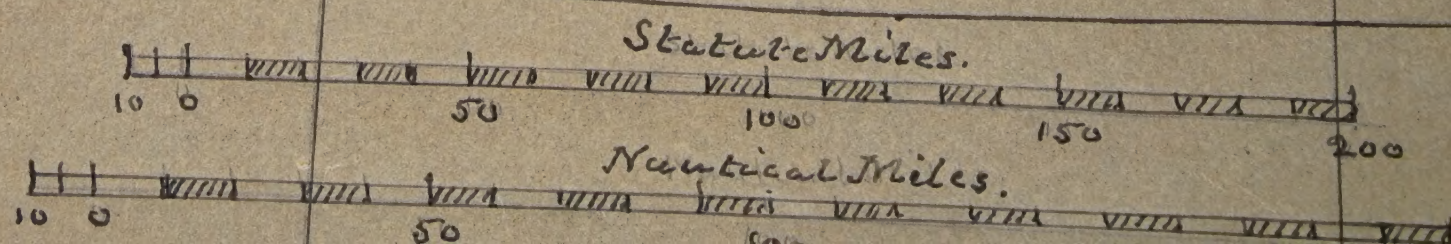 Statute Miles.
10 0 50 100 150 200
Nautical Miles.
10 0 50